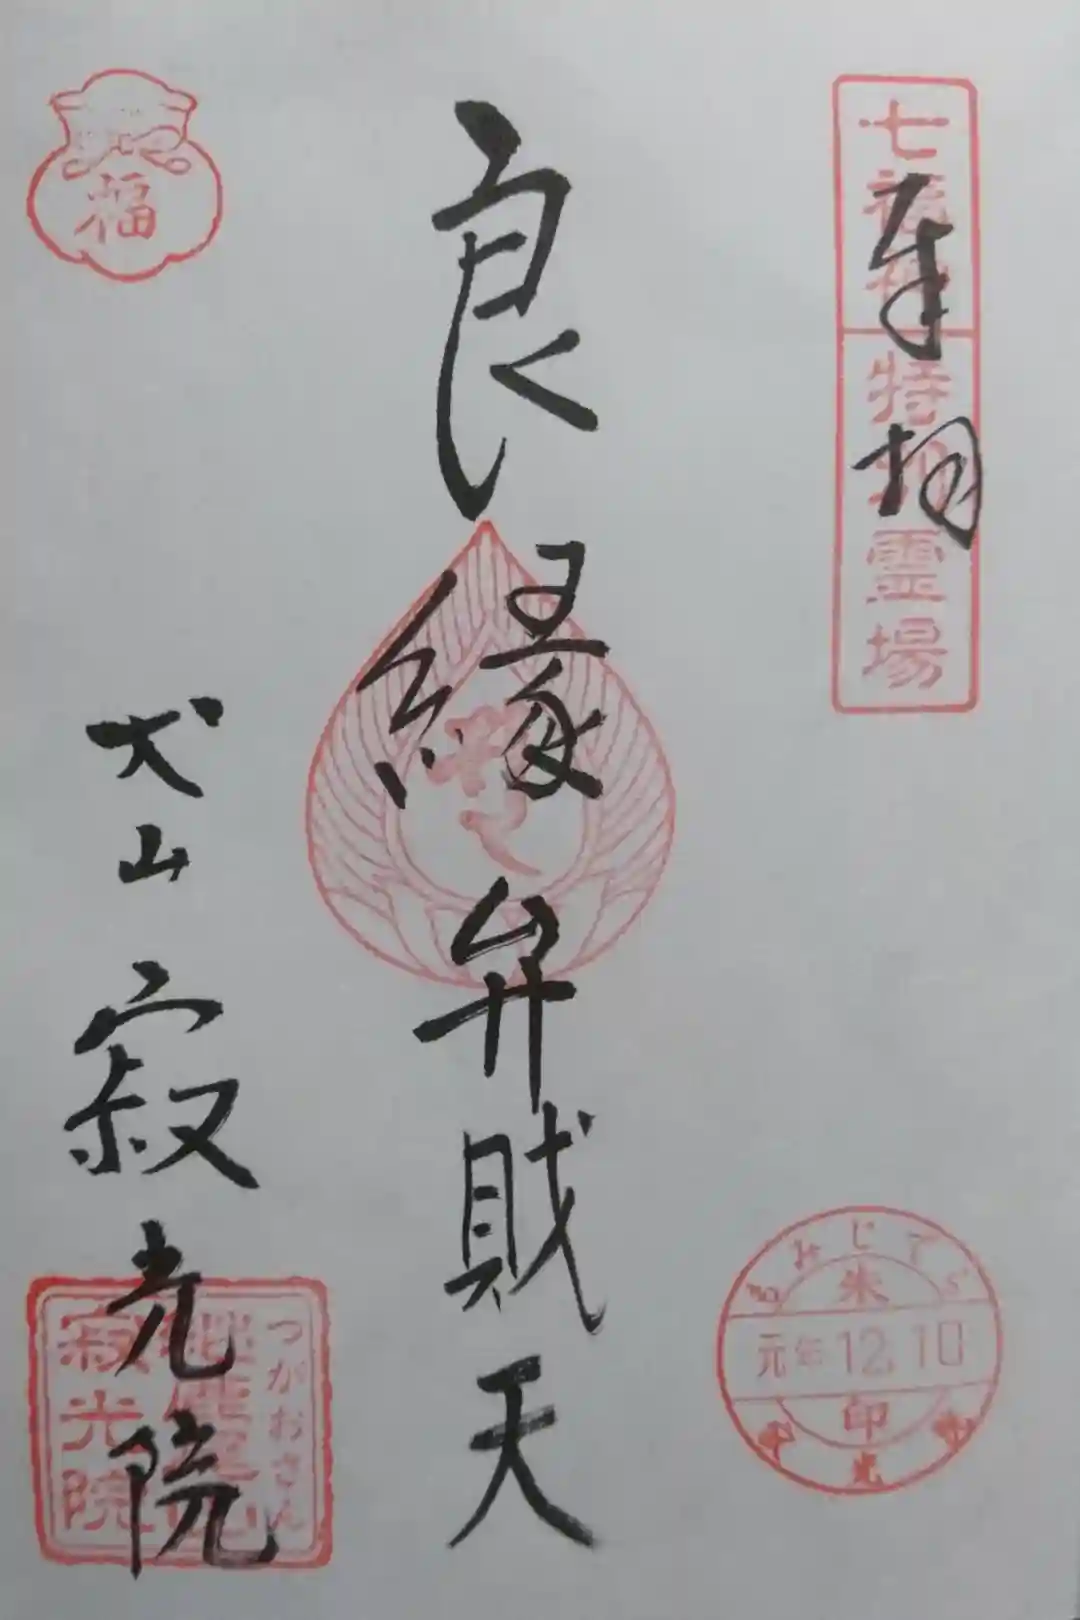 七福神特別霊場
奉拝
良縁弁財天
犬山寂光院
福
つがおさん
継鹿尾山
寂光院
もみじでら
朱
元年12.10
印